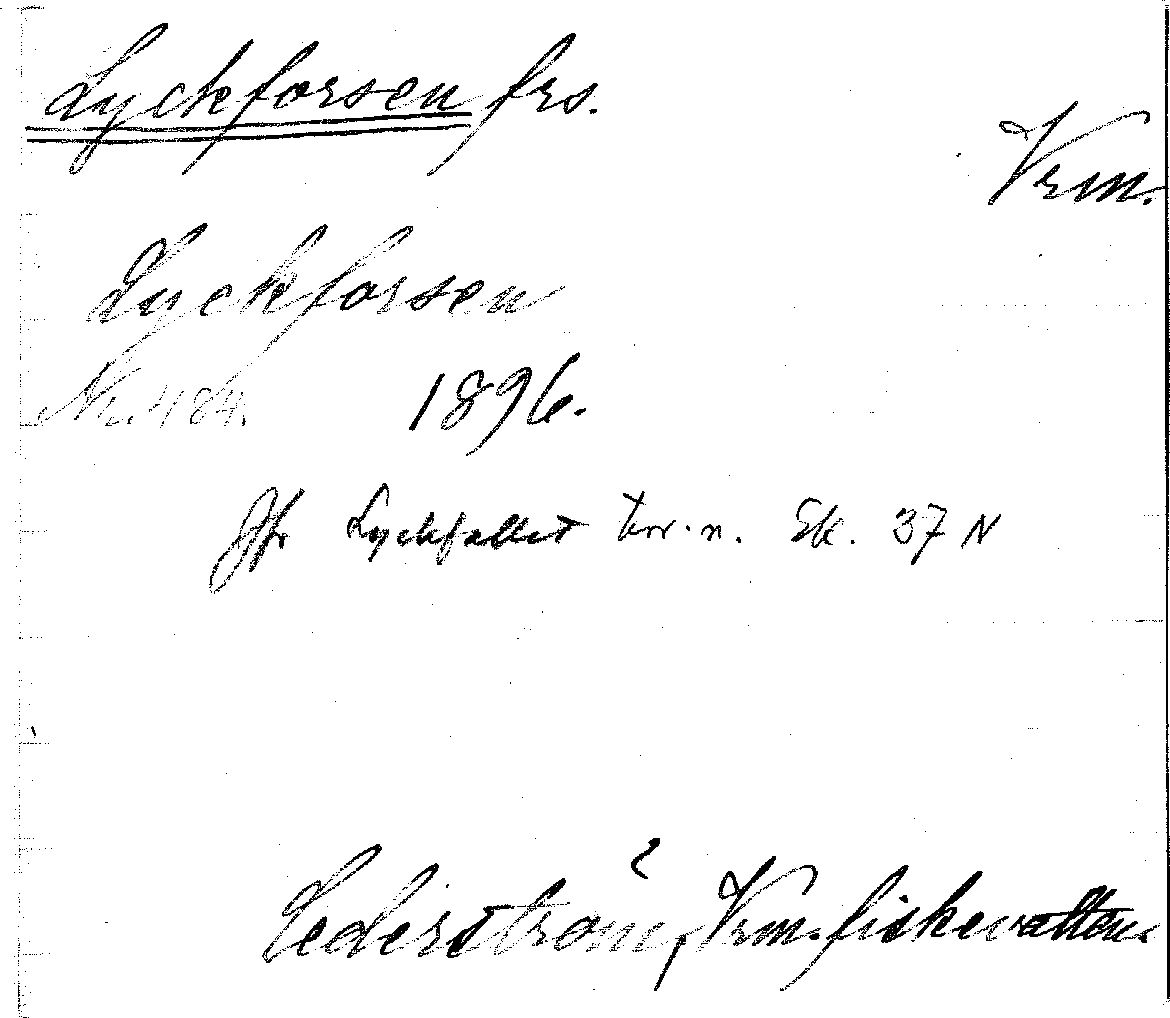 Lyckforsen frs.
Vrm.
Lyckforsen
No. 484. 1896.
Jfr Lyckfallet terr.n. Ek. 37 N
Cederström, Vrm. fiskevatten.